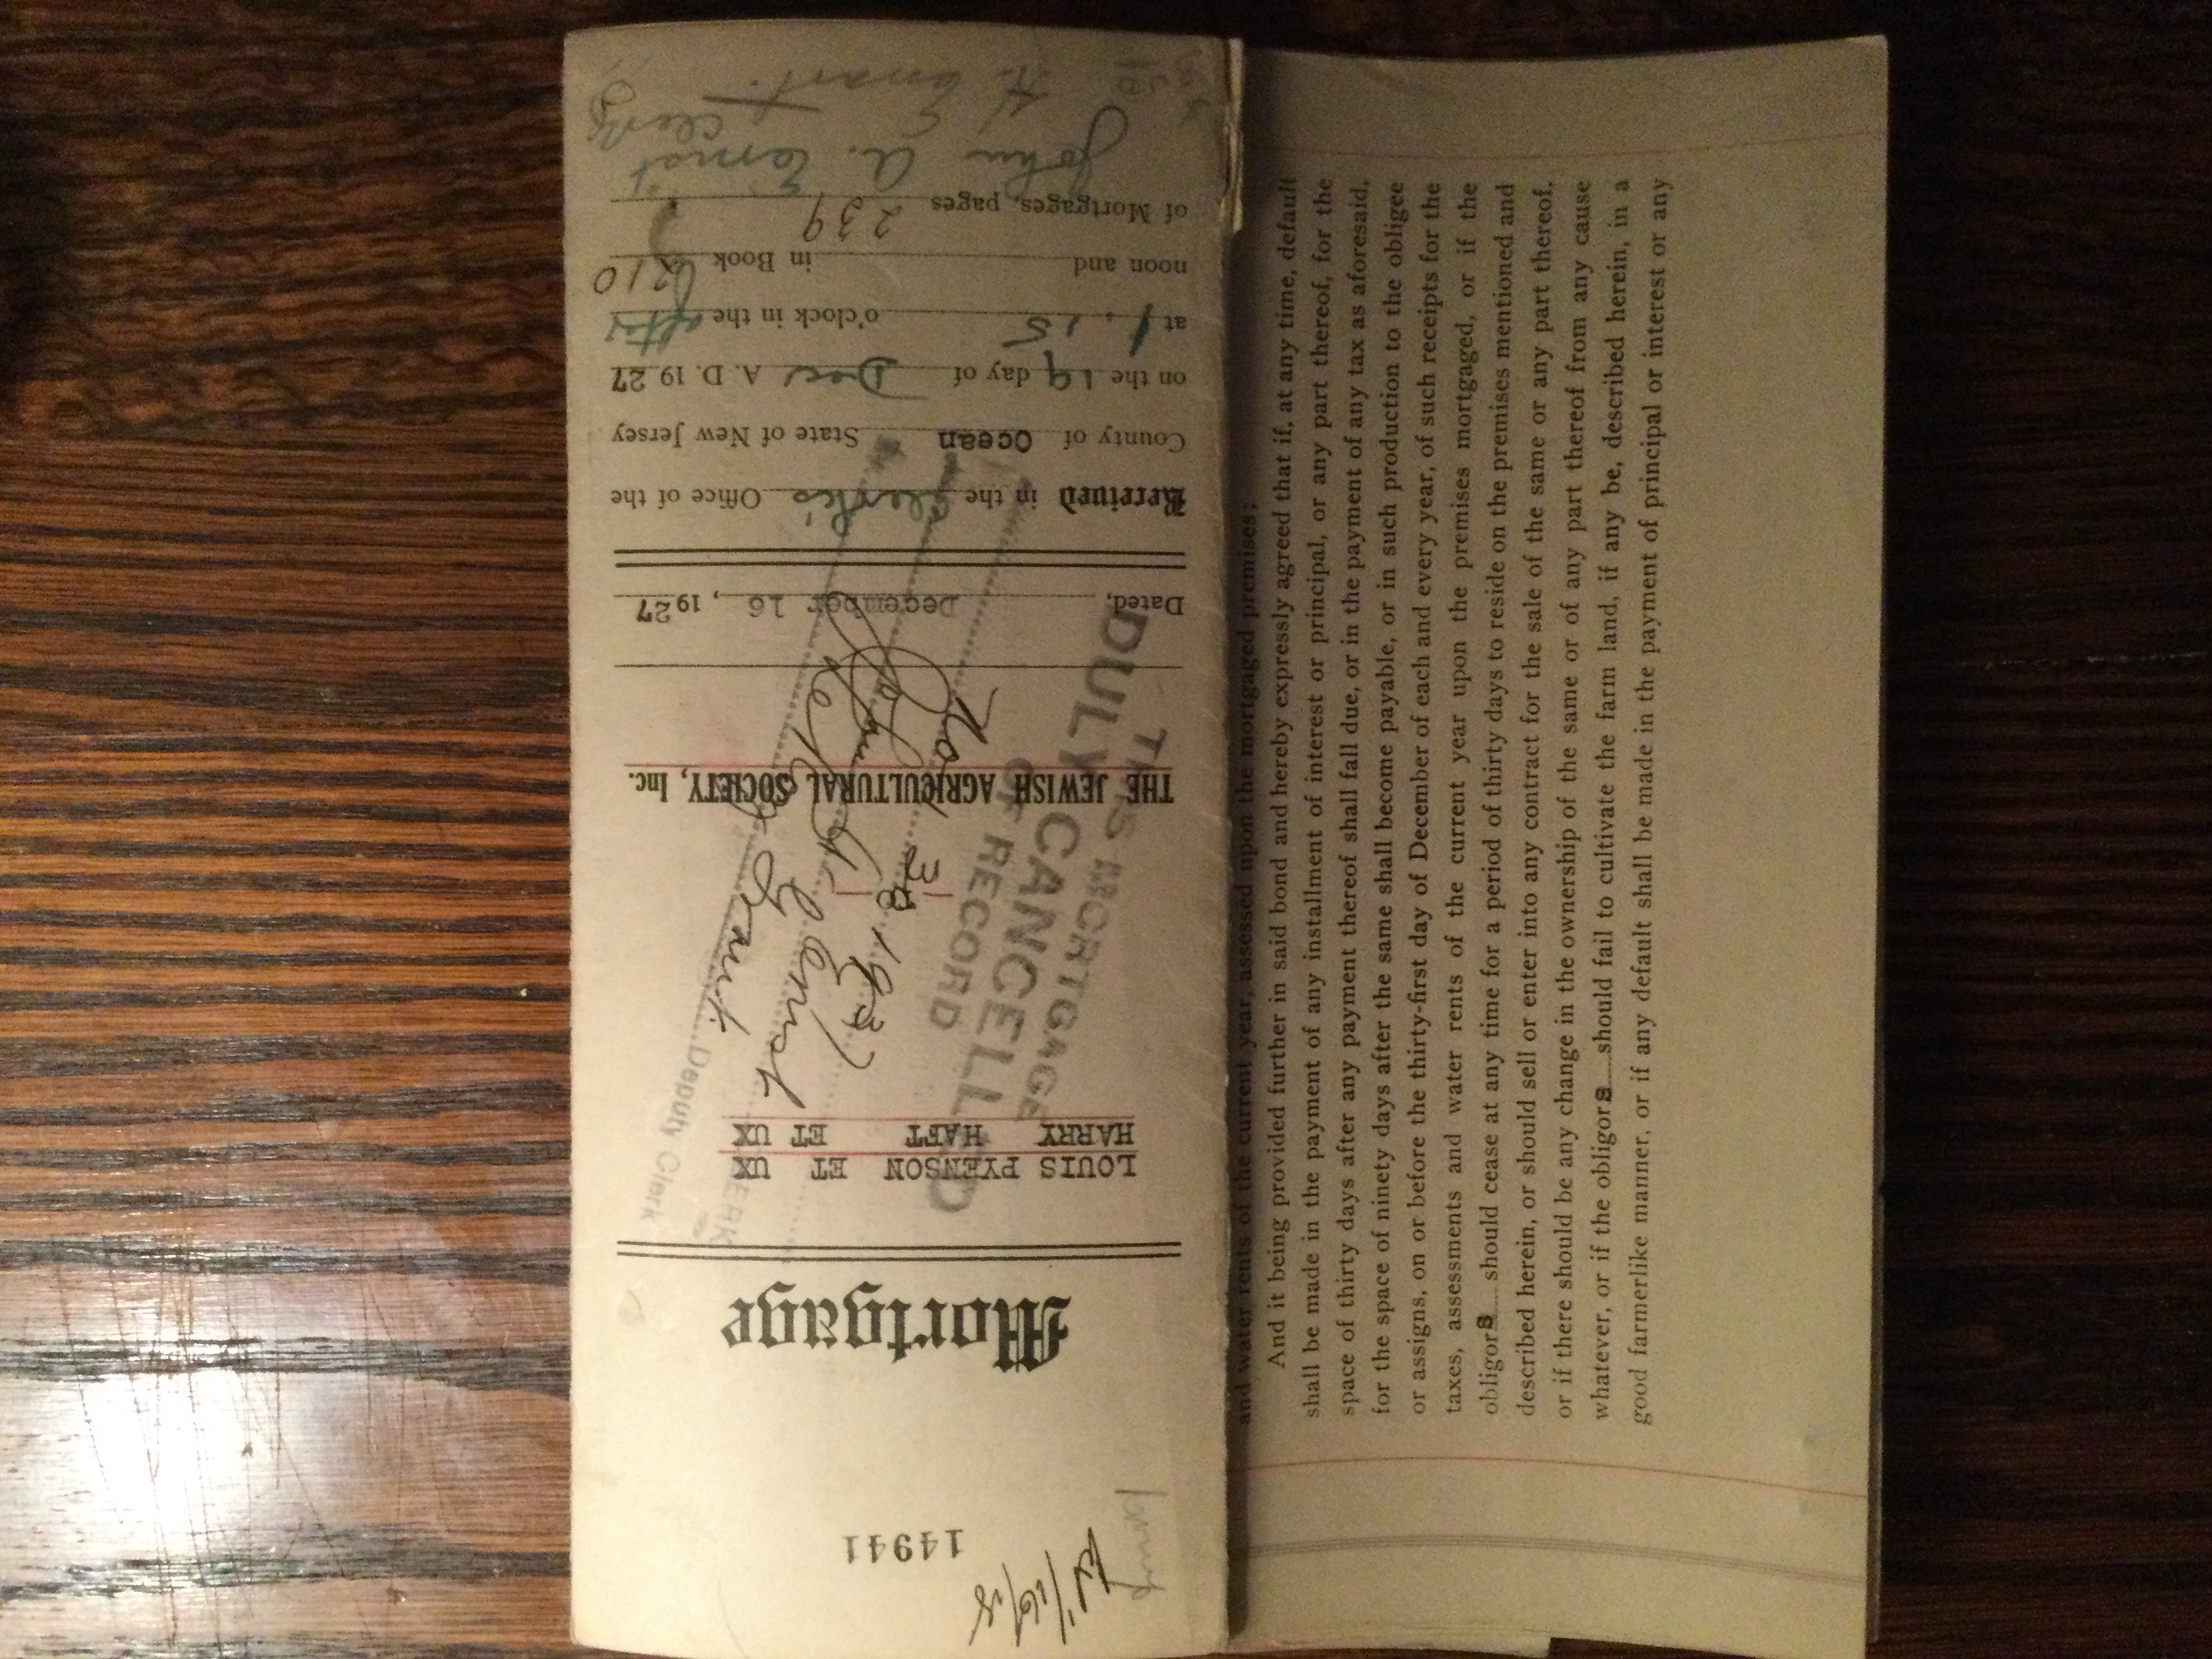 14941
Mortgage
LOUIS PYENSON ET UX
HARRY HAFT ET UX
THE JEWISH AGRICULTURAL SOCIETY, Inc.
Dated, December 16, 1927
Received in the Clerk's Office of the
County of Ocean State of New Jersey
on the 19 day of Dec A. D. 1927
at 1.15 o'clock in the after
noon and in Book 210
of Mortgages, pages 239
John A. Ernst
Clerk
THIS MORTGAGE
DULY CANCELLED
OF RECORD
CLERK
Deputy Clerk
and water rents of the current year, assessed upon the mortgaged premises;
And it being provided further in said bond and hereby expressly agreed that if, at any time, default
shall be made in the payment of any installment of interest or principal, or any part thereof, for the
space of thirty days after any payment thereof shall fall due, or in the payment of any tax as aforesaid,
for the space of ninety days after the same shall become payable, or in such production to the obligee
or assigns, on or before the thirty-first day of December of each and every year, of such receipts for the
taxes, assessments and water rents of the current year upon the premises mortgaged, or if the
obligors should cease at any time for a period of thirty days to reside on the premises mentioned and
described herein, or should sell or enter into any contract for the sale of the same or any part thereof,
or if there should be any change in the ownership of the same or of any part thereof from any cause
whatever, or if the obligors should fail to cultivate the farm land, if any be, described herein, in a
good farmerlike manner, or if any default shall be made in the payment of principal or interest or any